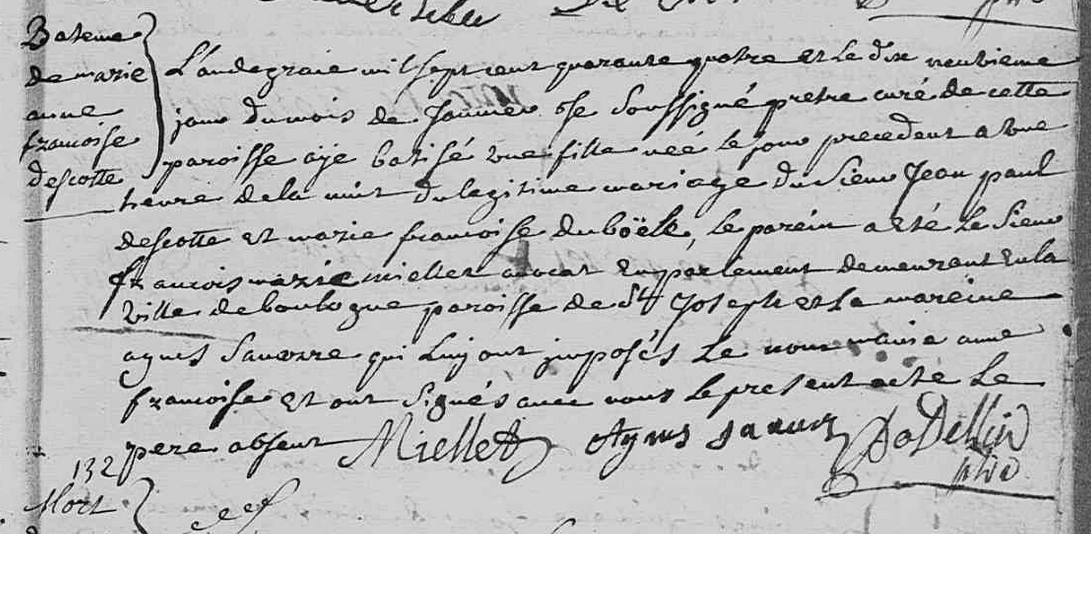 Bateme
de marie
anne
francoise
descotte
L'an de graie mil sept cent quarante quatre et Le dix neuvieme
jour du mois de Janvier Je Soussigné pretre curé de cette
paroisse aÿe batisé une fille née le jour precedent a une
heure de la nuit du legitime mariage du Sieur Jean paul
descotte et marie francoise du boëlle, le parein a Eté Le Sieur
francois marie miellet avocat En parlement demeurant En la
ville de boulogne paroisse de St Joseph et La mareine
agnes Sauvzre qui Luy ont jmposés Le nom marie anne
francoise Et ont Signés avec nous le present acte Le
pere absent Miellet Agnes
132
Mort